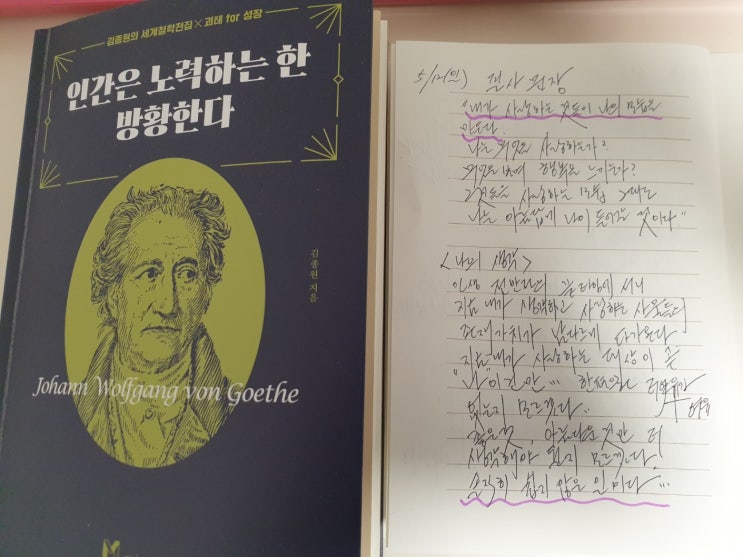 김종원의 세계철학전집×괴테 for 성장
인간은 노력하는 한
방황한다
김종원 지음
Johann Wolfgang von Goethe
5/12(일) 필사 문장
"내가 사랑하는 것들이 나의 모습을
만든다.
나는 무엇을 사랑하는가?
무엇을 보며 행복을 느끼는가?
그것들을 사랑하는 모습 그대로
나는 아름답게 나이 들어갈 것이다."
<나의 생각>
인생 전반전의 끝자락에 서니
지금 내가 생각하고 사랑하는 사물들의
존재가치가 남다르게 다가온다
지금 내가 사랑하는 대상이 곧
"나"이건만... 한편으로는
없는지 모르겠다..
좋은 것, 아름다운 것만 더
생각해야 될지 모르겠다.
솔직히 쉽지 않은 일이다...